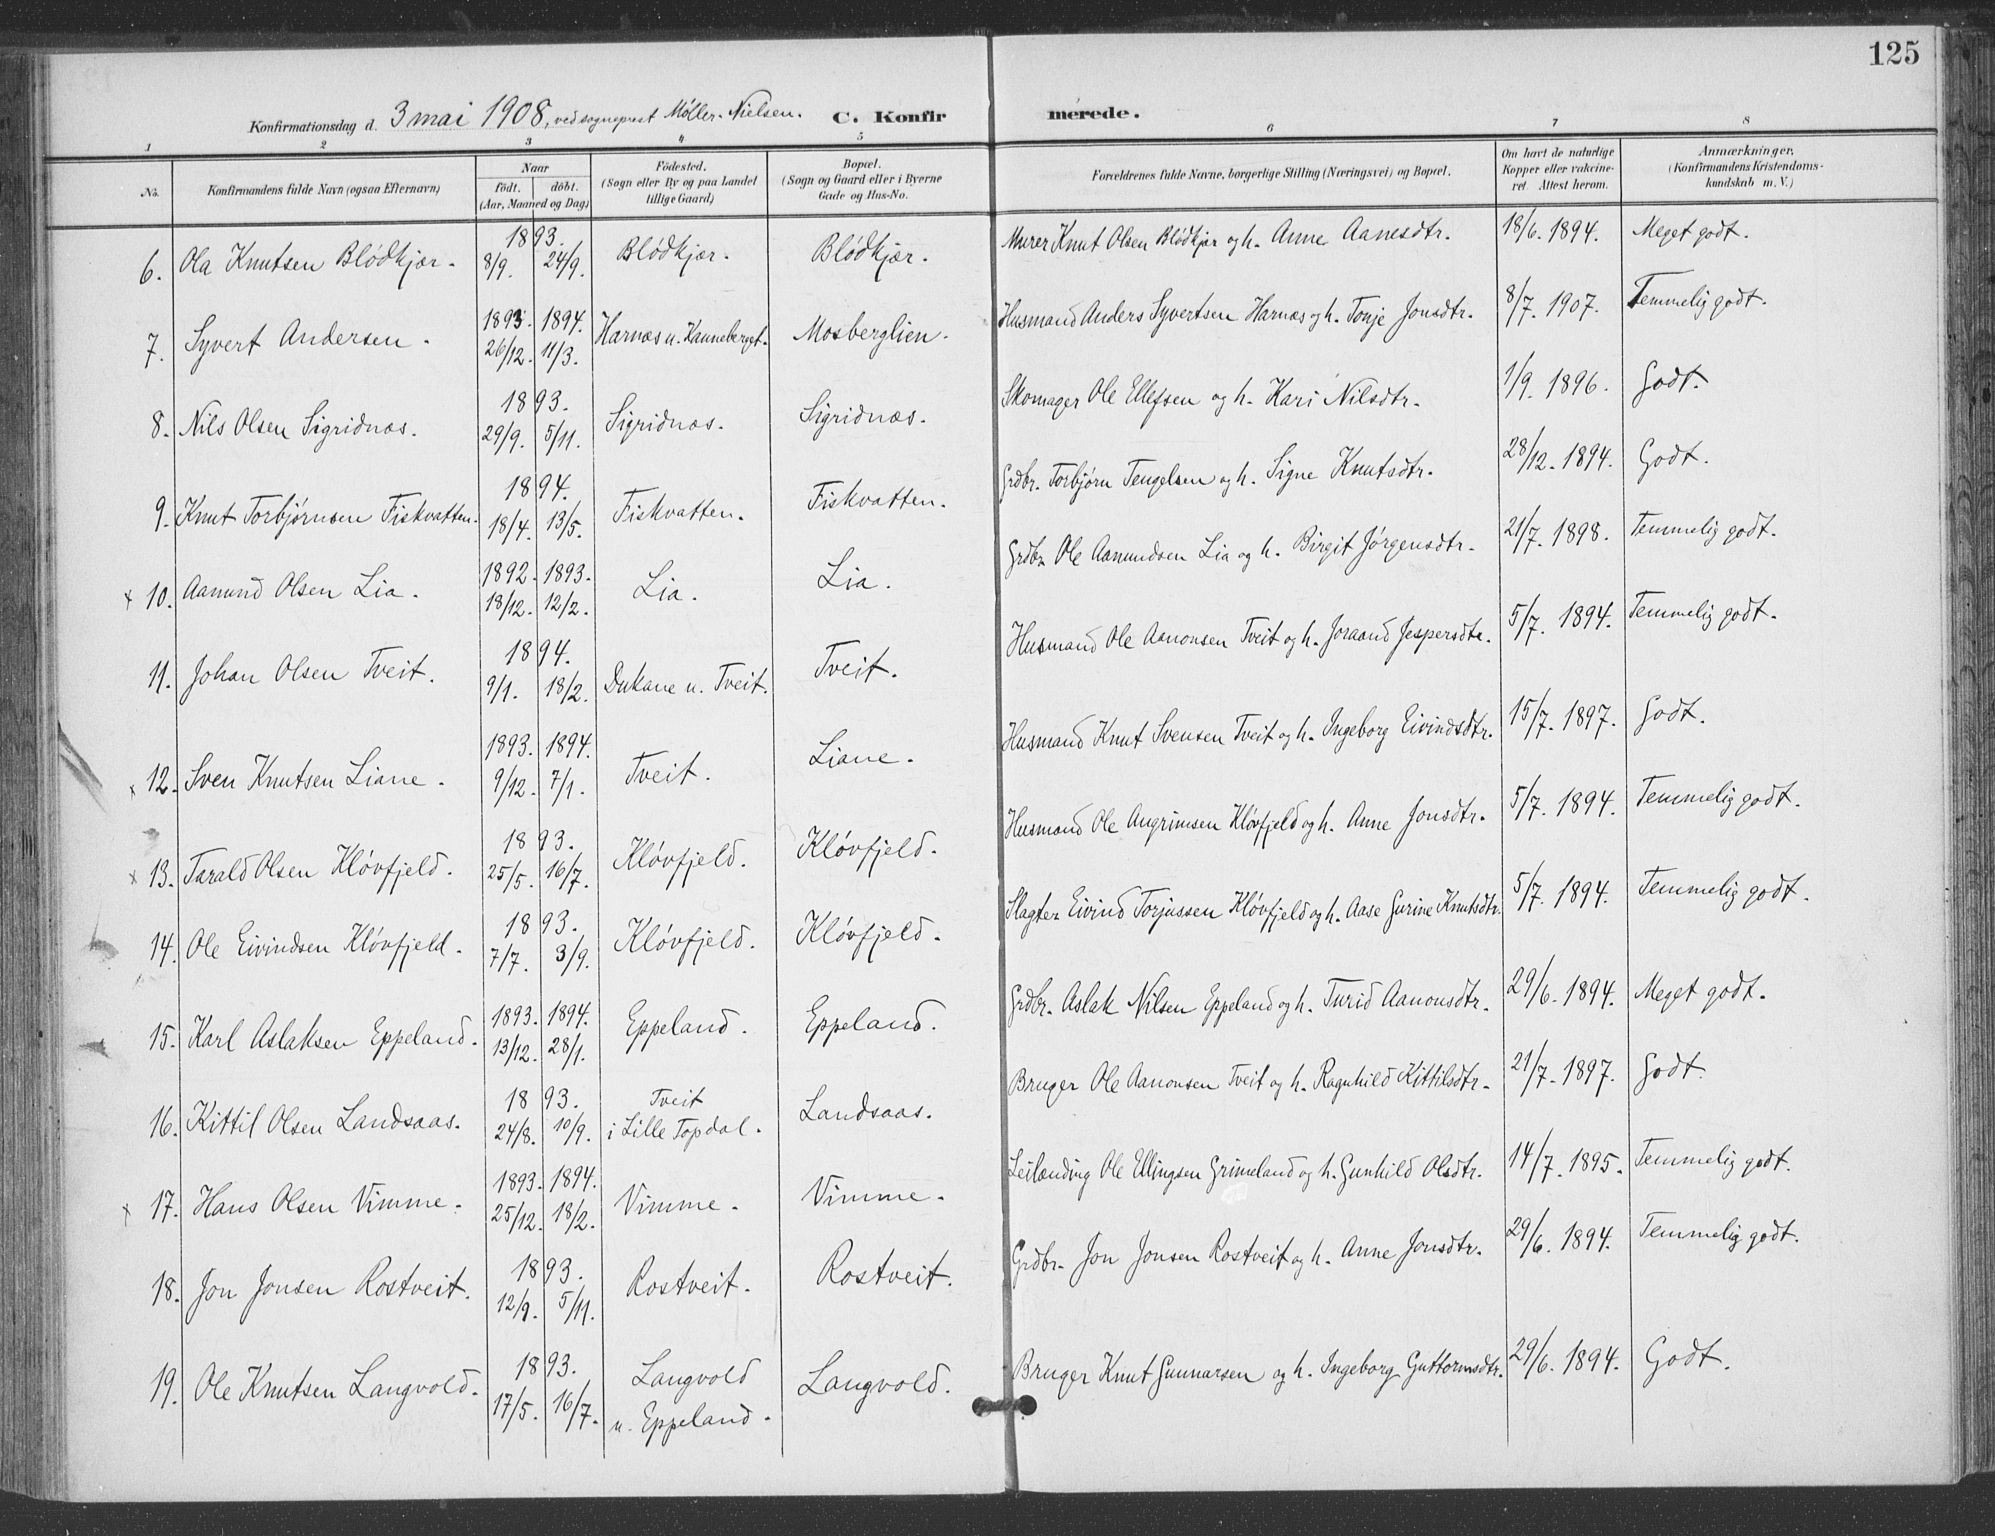 125
Konfirmationsdag d. 3 mai 1908, ved sogneprest Møller-Nielsen. C. Konfirmerede.
1 2 3 4 5 6 7 8
No. Konfirmandens fulde Navn (ogsaa Efternavn) Naar født. døbt. (Aar, Maaned og Dag) Fødested. (Sogn eller By og paa Landet tillige Gaard) Bopæl. (Sogn og Gaard eller i Byerne Gade og Hus-No. Forældrenes fulde Navne, borgerlige Stilling (Næringsvei) og Bopæl. Om havt de naturlige Kopper eller vakcineret. Attest herom. Anmærkninger. (Konfirmandens Kristendomskundskab m. V.)
6. Ola Knutsen Blödkjær. 1893. 8/9. 24/9. Blödkjær. Blödkjær. Murer Knut Olsen Blödkjær og h. Anne Aanesdtr. 18/6. 1894. Meget godt.
7. Syvert Andersen. 1893. 26/12. 1894. 11/3. Harnæs u. Kanneberget. Mosberglien. Husmand Anders Syvertsen Harnæs og h. Tonje Jonsdtr. 8/7. 1907. Temmelig godt.
8. Nils Olsen Sigridnæs. 1893. 29/9. 5/11. Sigridnæs. Sigridnæs. Skomager Ole Ellefsen og h. Kari Nilsdtr. 1/9. 1896. Godt.
9. Knut Torbjørnsen Fiskvatten. 1894. 18/4. 13/5. Fiskvatten. Fiskvatten. Grdbr. Torbjørn Tengelsen og h. Signe Knutsdtr. 28/12. 1894. Godt.
x 10. Aamund Olsen Lia. 1892. 18/12. 1893. 12/2. Lia. Lia. Grdbr. Ole Aamundsen Lia og h. Birgit Jørgensdtr. 21/7. 1898. Temmelig godt.
11. Johan Olsen Tveit. 1894. 9/1. 18/2. Dukane u. Tveit. Tveit. Husmand Ole Aanonsen Tveit og h. Joraand Jespersdtr. 5/7. 1894. Temmelig godt.
x 12. Sven Knutsen Liane. 1893. 9/12. 1894. 7/1. Tveit. Liane. Husmand Knut Svensen Tveit og h. Ingeborg Eivindsdtr. 15/7. 1897. Godt.
x 13. Tarald Olsen Kløvfjeld. 1893. 25/5. 16/7. Kløvfjeld. Kløvfjeld. Husmand Ole Angrimsen Kløvfjeld og h. Anne Jonsdtr. 5/7. 1894. Temmelig godt.
14. Ole Eivindsen Kløvfjeld. 1893. 7/7. 3/9. Kløvfjeld. Kløvfjeld. Slagter Eivind Torjussen Kløvfjeld og h. Aase Gurine Knutsdtr. 5/7. 1894. Temmelig godt.
15. Karl Aslaksen Eppeland. 1893. 13/12. 1894. 28/1. Eppeland. Eppeland. Grdbr. Aslak Nilsen Eppeland og h. Turid Aanonsdtr. 29/6. 1894. Meget godt.
16. Kittil Olsen Landsaas. 1893. 24/8. 10/9. Tveit i Lille Topdal. Landsaas. Bruger Ole Aanonsen Tveit og h. Ragnhild Kittilsdtr. 21/7. 1897. Godt.
x 17. Hans Olsen Vimme. 1893. 25/12. 1894. 18/2. Vimme. Vimme. Leilænding Ole Ellingsen Grimeland og h. Gunhild Olsdtr. 14/7. 1895. Temmelig godt.
18. Jon Jonsen Rostveit. 1893. 12/9. 5/11. Rostveit. Rostveit. Grdbr. Jon Jonsen Rostveit og h. Anne Jonsdtr. 29/6. 1894. Temmelig godt.
19. Ole Knutsen Langvold. 1893. 17/5. 16/7. Langvold u. Eppeland. Langvold. Bruger Knut Gunnarsen og h. Ingeborg Guttormsdtr. 29/6. 1894. Godt.